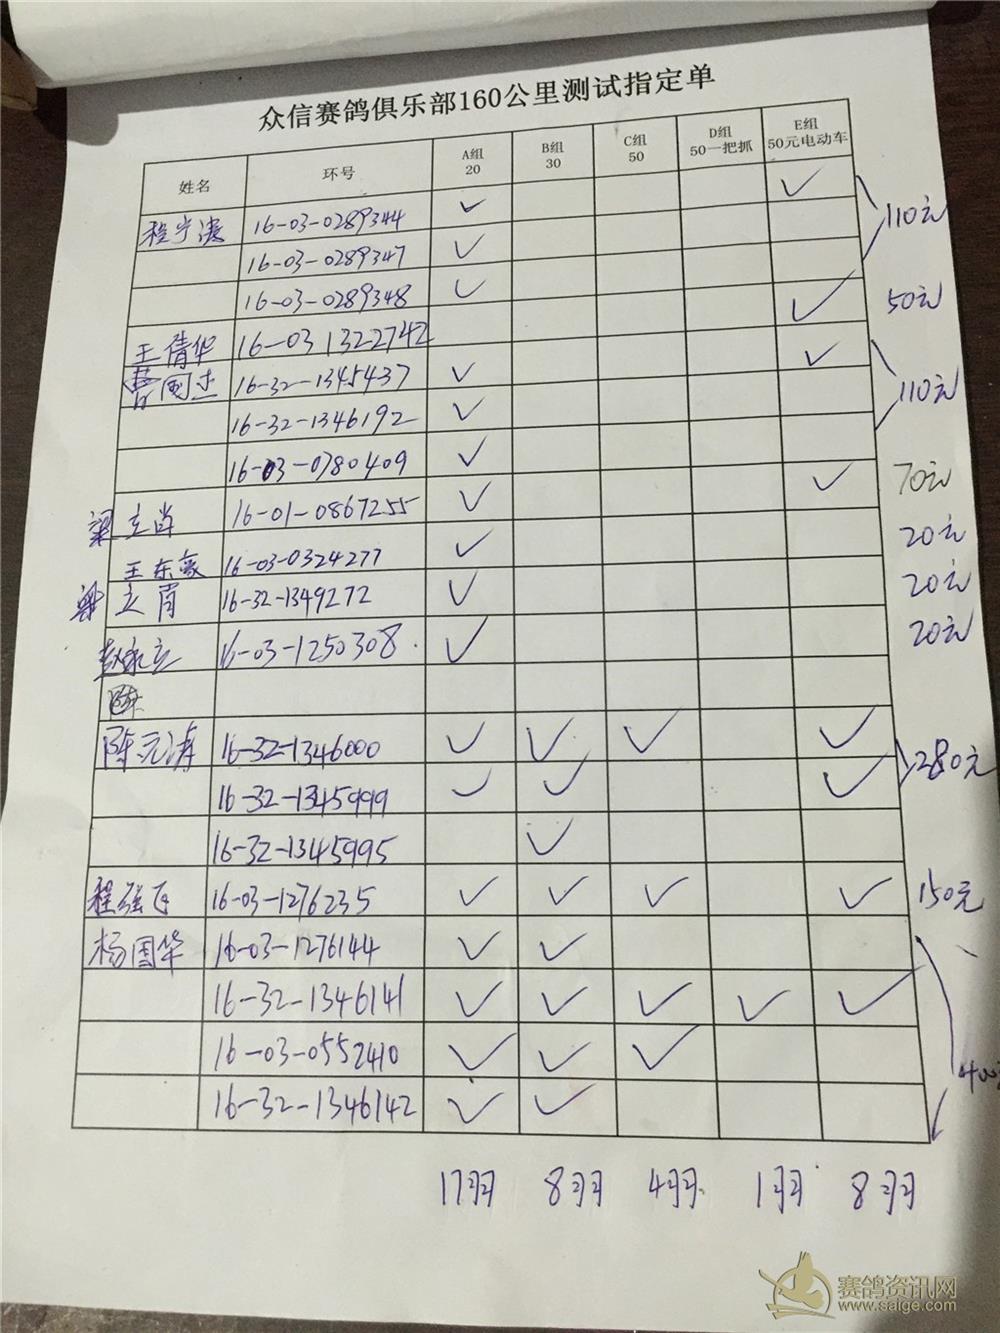 众信赛鸽俱乐部160公里测试指定单
姓名 环号 A组 20 B组 30 C组 50 D组 50一把抓 E组 50元电动车
程宁涛 16-03-0289344 ✓ ✓
16-03-0289347 ✓ 110元
16-03-0289348 ✓
王倩华 16-03 1322742 ✓ 50元
曹国杰 16-32-1345437 ✓ ✓
16-32-1346192 ✓ 110元
16-03-0780409 ✓
梁立肖 16-01-0867255 ✓ ✓ 70元
王东豪 16-03-0324277 ✓ 20元
梁立肖 16-32-1349272 ✓ 20元
赵永立 16-03-1250308 ✓ 20元
陈元涛 16-32-1346000 ✓ ✓ ✓ ✓
16-32-1345999 ✓ ✓ ✓ 280元
16-32-1345995 ✓
程强飞 16-03-1276235 ✓ ✓ ✓ ✓ 150元
杨国华 16-03-1276144 ✓ ✓
16-32-1346141 ✓ ✓ ✓ ✓ ✓
16-03-0552410 ✓ ✓ ✓
16-32-1346142 ✓ ✓
17羽 8羽 4羽 1羽 8羽
赛鸽资讯网
www.saige.com